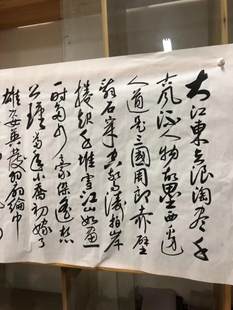 大江東去浪淘尽千
古风流人物故壘西邊
人道是三國周郎赤壁
乱石穿空驚涛拍岸
捲起千堆雪江山如画
一时多少豪傑遥想
公瑾當年小喬初嫁了
雄姿英發羽扇綸巾